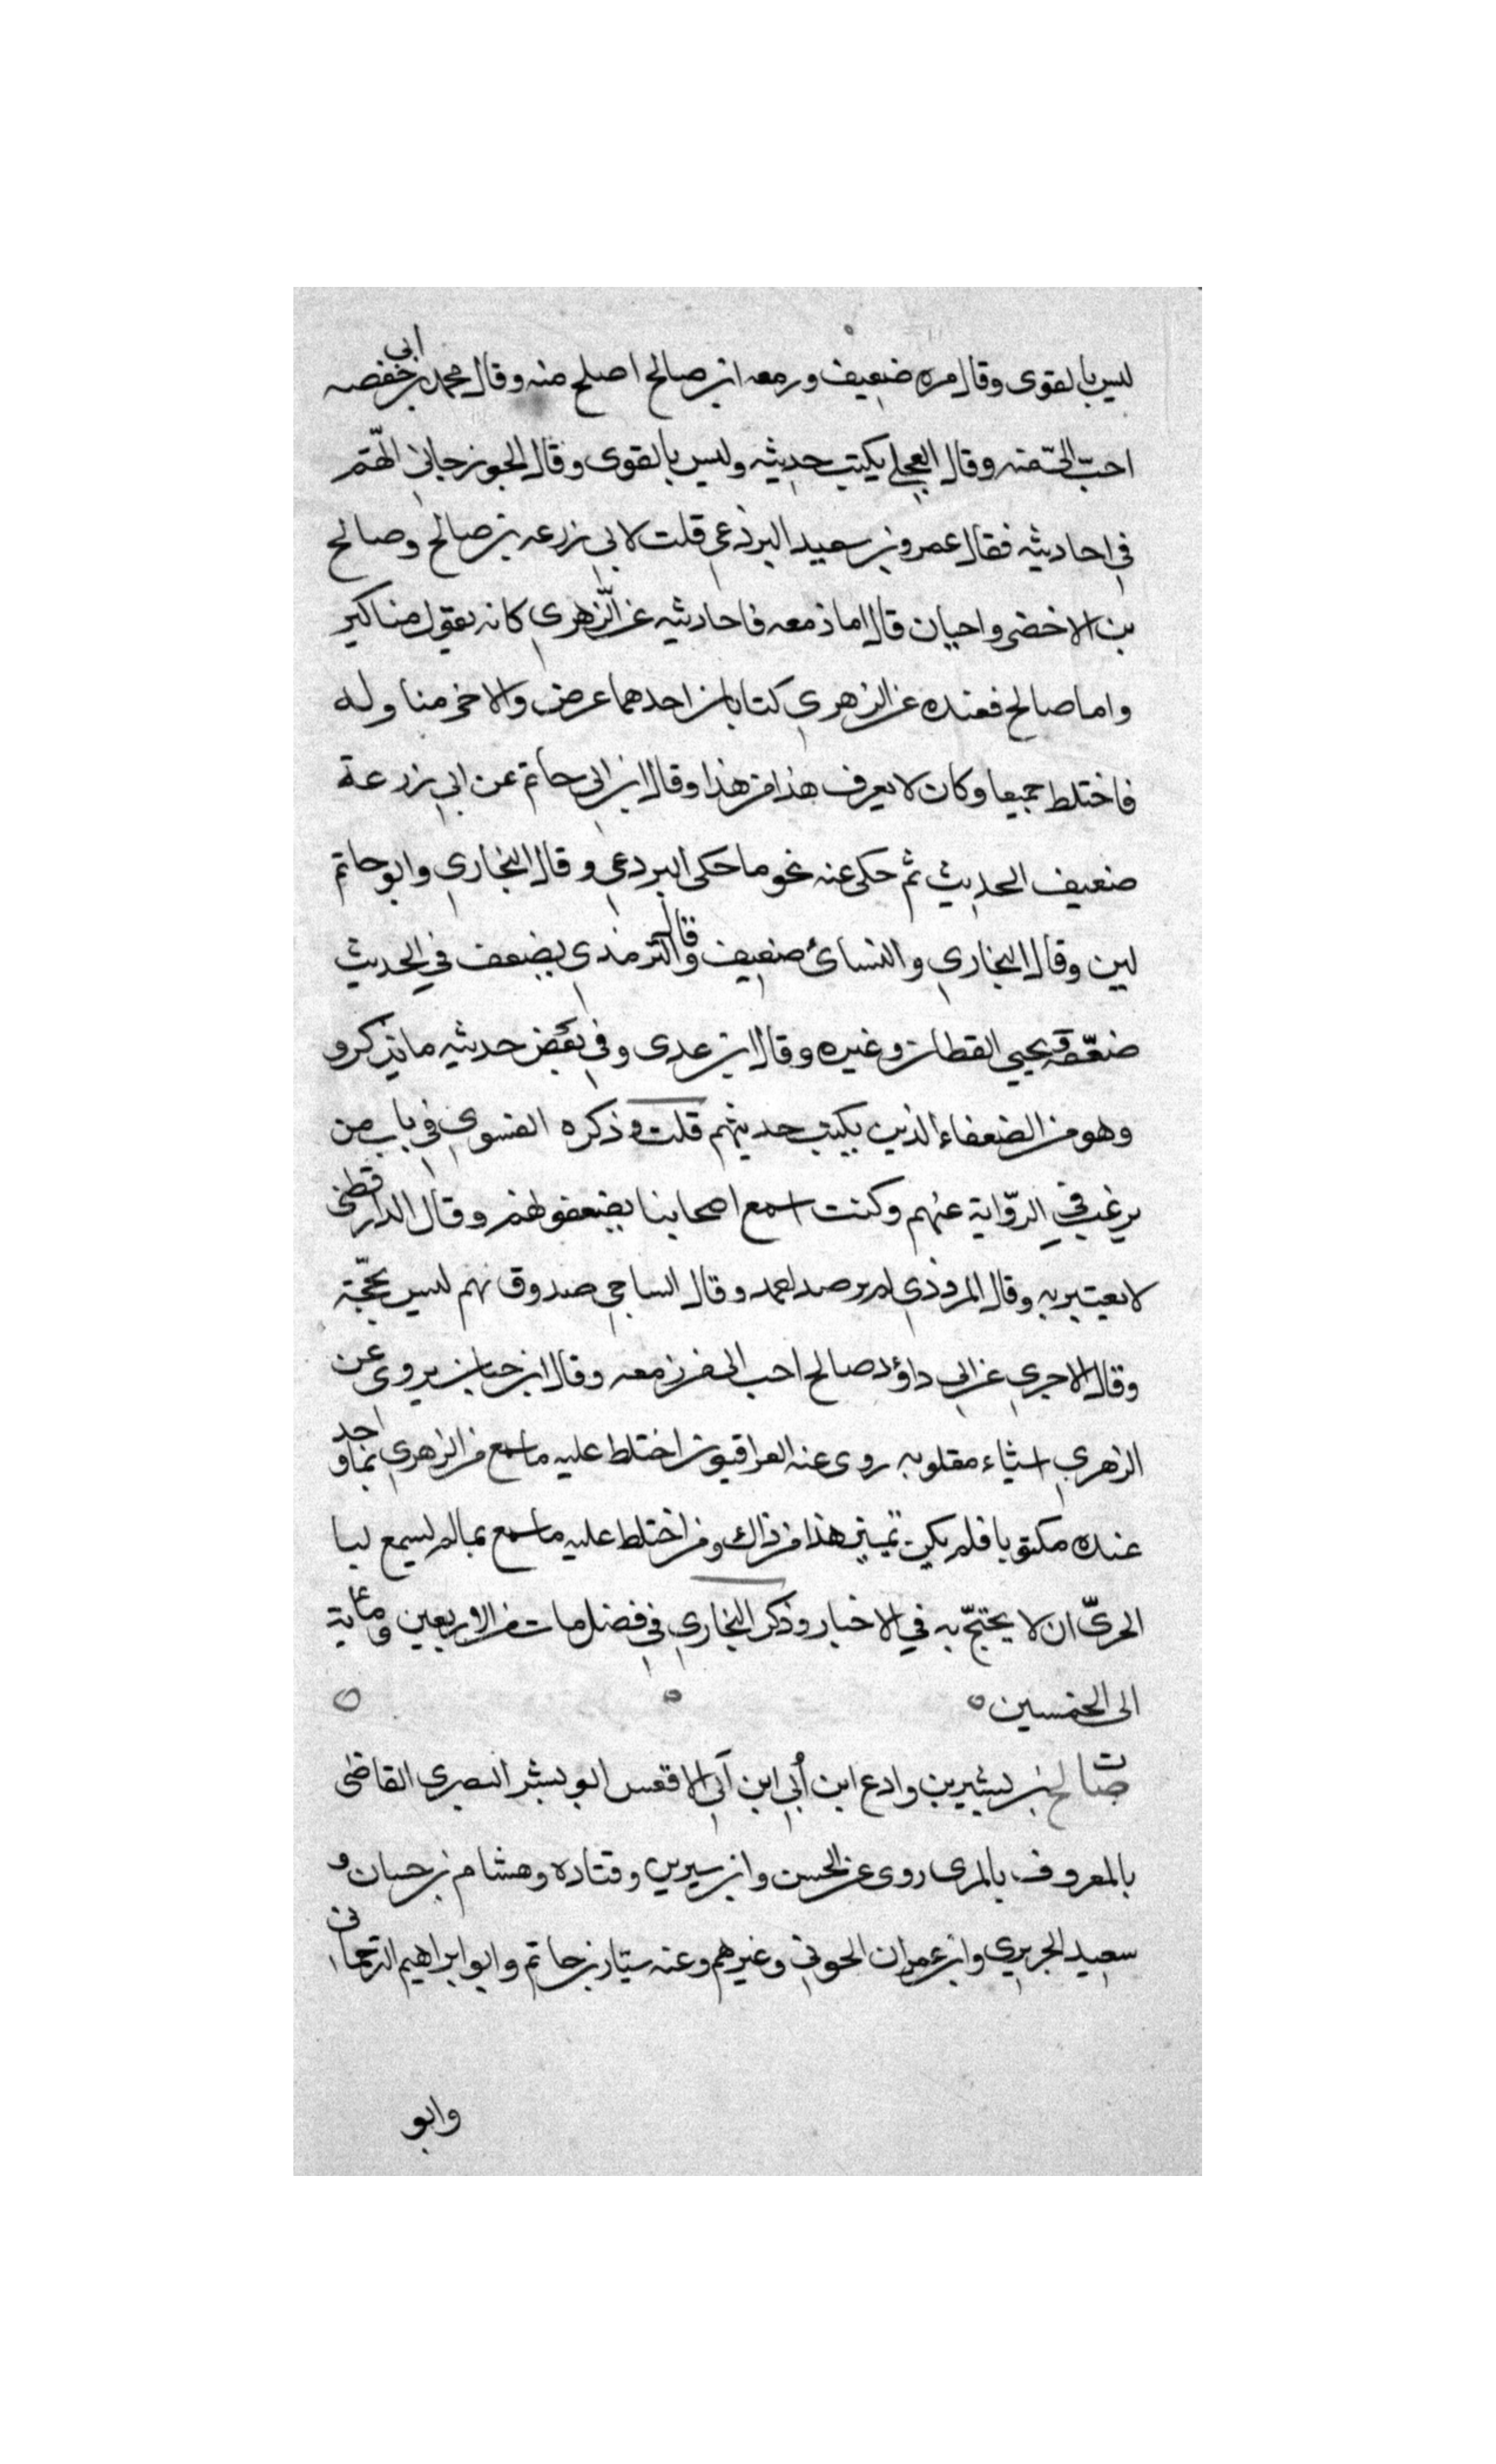 ليس بالقوى وقال مره ضعيف ورمعه ابن صالح اصلح منه وقال محمد بن ابى حفصه
احبّ الىّ منه وقال العجلى يكتب حديثه وليس بالقوى وقال الجوزجانى اتّهم
فى احاديثه فقال عمرو بن سعيد البرذعى قلت لابى زرعه بن صالح وصالح
بن الاخضر واحيان قال اما زمعه فاحاديثه عن الزّهرى كانه يقول مناكير
واما صالح فعنده عن الزهرى كتابان احدهما عرض والاخر مناوله
فاختلط جميعا وكان لا يعرف هذا من هذا وقال ابن ابى حاتم عن ابى زرعة
ضعيف الحديث ثم حكى عنه نحو ما حكى البردعى وقال البخارى وابو حاتم
لين وقال البخارى والنسائ ضعيف وقال الترمذى يضعف فى الحديث
ضعّفه يحيى القطان وغيره وقال ابن عدى وفى بعض حديثه ما ينكرو
وهو من الضعفاء الذين يكتب حديثهم قلت وذكره الفسوى فى باب من
يرغب فى الرّواية عنهم وكنت اسمع اصحابنا يضعفونهم وقال الدارقطنى
لا يعتبر به وقال المروذى لم يرضه احمد وقال الساجى صدوق نهم ليس بحجّة
وقال الاجرى عن ابى داؤد صالح احب الى من زمعه وقال ابن حبان يروى عن
الزهرى اشياء مقلوبه روى عنه العراقيون اختلط عليه ما سمع من الزهرى بما وجد
عنده مكتوبا فلم يكن تميين هذا من ذاك ومن اختلط عليه ما سمع بمالم يسمع لبا
الحرىّ ان لا يحتجّ به فى الاخبار وذكر البخارى فى فضل مات من الاربعين ومائة
الى الخمسين
صالح بن بشير بن وادع ابن أبى ابن آبى الاقعس ابو بشر البصرى القاضى
بالمعروف بالمرى روى عن الحسن وابن سيرين وقتاده وهشام بن حسان و
سعيد الجريرى وابى عمران الحونى وغيرهم وعنه سيّار بن حاتم وابو ابراهيم الترجمانى
وابو